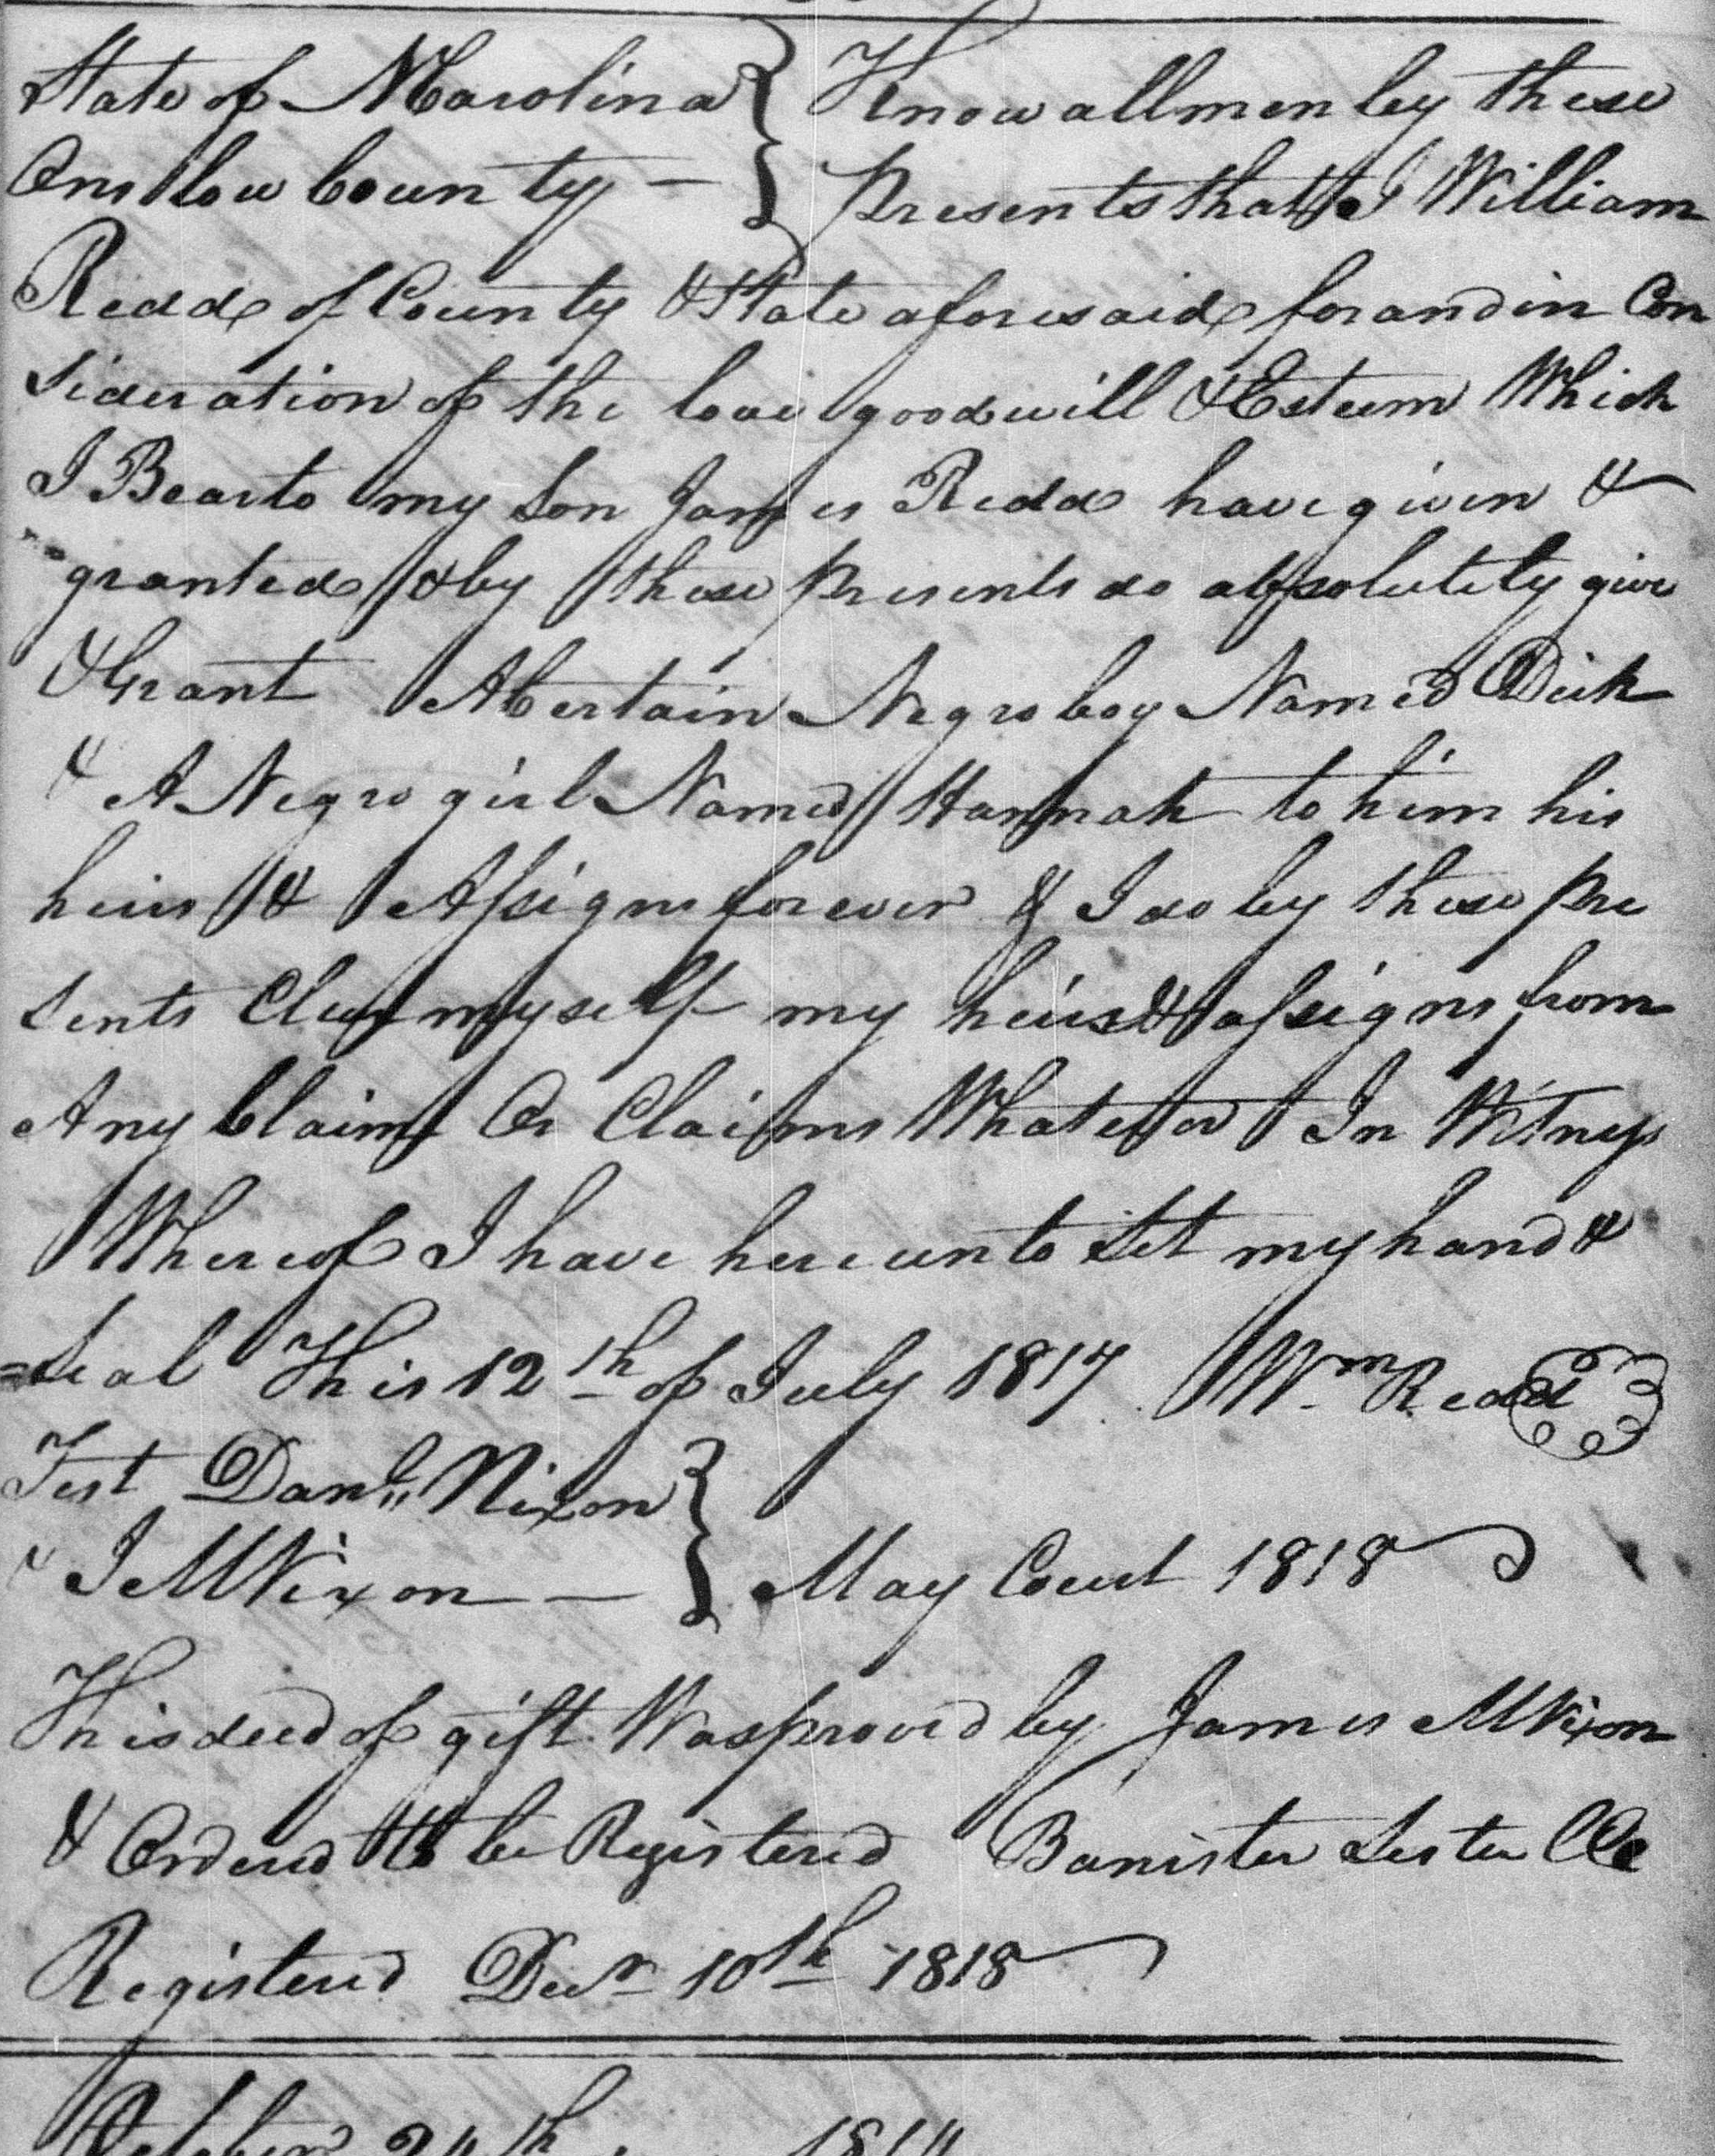 State of N Carolina } Know all men by these
Onslow County — } Presents that I William
Redd of County & State aforesaid for and in Con
sideration of the love good will & Esteem Which
I Bear to my Son James Redd have given &
granted & by these presents do absolutely give
& Grant A Certain Negro boy Named Dick
& A Negro girl Named Hannah to him his
heirs & Assigns forever & I do by these pre
sents Clear myself my heirs & assigns from
Any Claim Or Claims Whatever In Witness
Whereof I have hereunto Set my hand &
Seal This 12th of July 1817 Wm Redd
Test Danl Nixon }
& J M Nixon — } May Court 1818
This deed of gift Was proved by James M Nixon
& Ordered to be Registered Banister Lester CC
Registered Decr 10th 1818
October 24th 1814